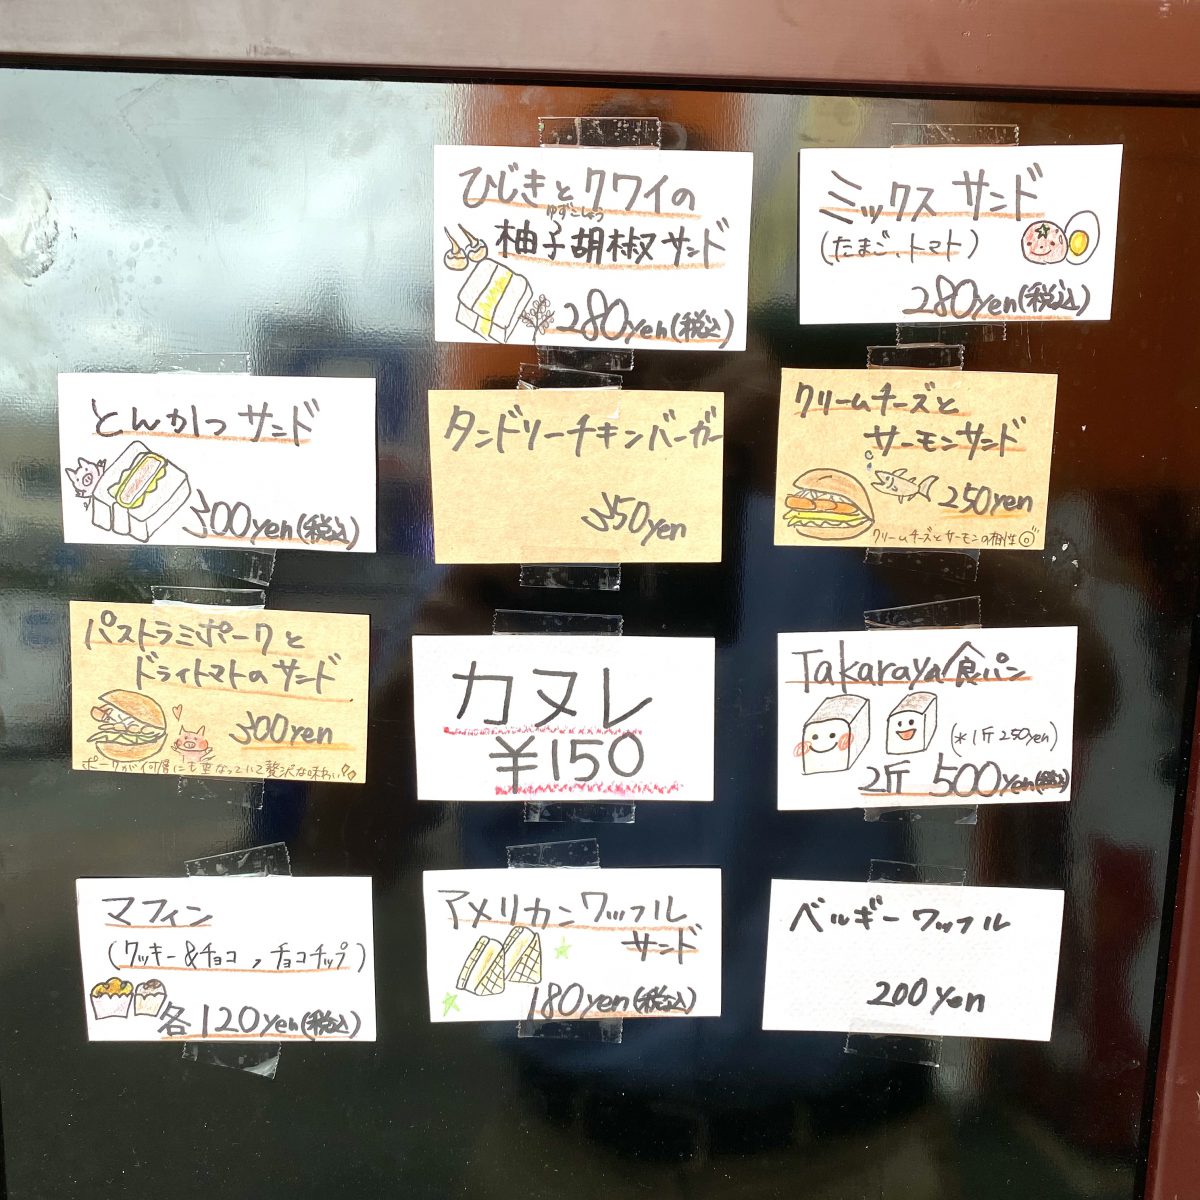 ひじきとクワイの
ゆずこしょう
柚子胡椒サンド
280yen(税込)
ミックス サンド
(たまご、トマト)
280yen(税込)
とんかつ サンド
300yen(税込)
タンドリーチキンバーガー
350yen
クリームチーズと
サーモンサンド
250yen
クリームチーズとサーモンの相性◎
パストラミポークと
ドライトマトの サンド
300yen
ポークが何層にも重なっていて贅沢な味わい
カヌレ
¥150
Takaraya食パン
(*1斤250yen)
2斤 500yen(税込)
マフィン
(クッキー&チョコ,チョコチップ)
各120yen(税込)
アメリカンワッフル
サンド
180yen(税込)
ベルギーワッフル
200yen